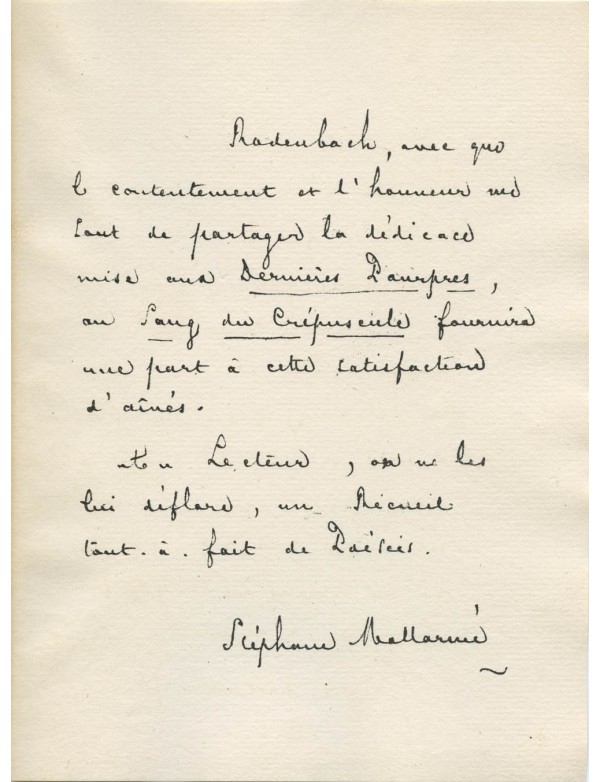 Rodenbach, avec que
le contentement et l'honneur me
sont de partager la dédicace
mise aux Dernières Pourpres,
au Sang du Crépuscule fournira
une part à cette satisfaction
d'aînés.
Au Lecteur, on ne les
lui déflore, un Recueil
tout-à-fait de Poésies.
Stéphane Mallarmé